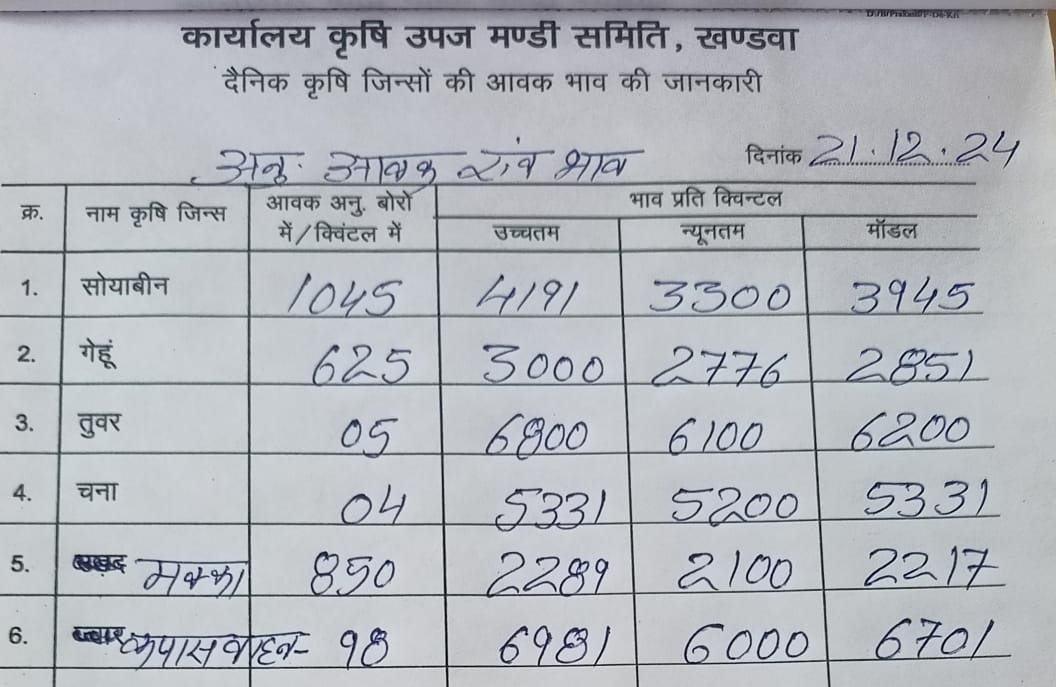 कार्यालय कृषि उपज मण्डी समिति, खण्डवा
दैनिक कृषि जिन्सों की आवक भाव की जानकारी
अनु. आवक एंव भाव दिनांक 21.12.24
क्र. नाम कृषि जिन्स आवक अनु. बोरो में/क्विंटल में भाव प्रति क्विन्टल
उच्चतम न्यूनतम मॉडल
1. सोयाबीन 1045 4191 3300 3945
2. गेहूं 625 3000 2776 2851
3. तुवर 05 6800 6100 6200
4. चना 04 5331 5200 5331
5. मक्का 850 2289 2100 2217
6. कपास वाहन- 98 6981 6000 6701